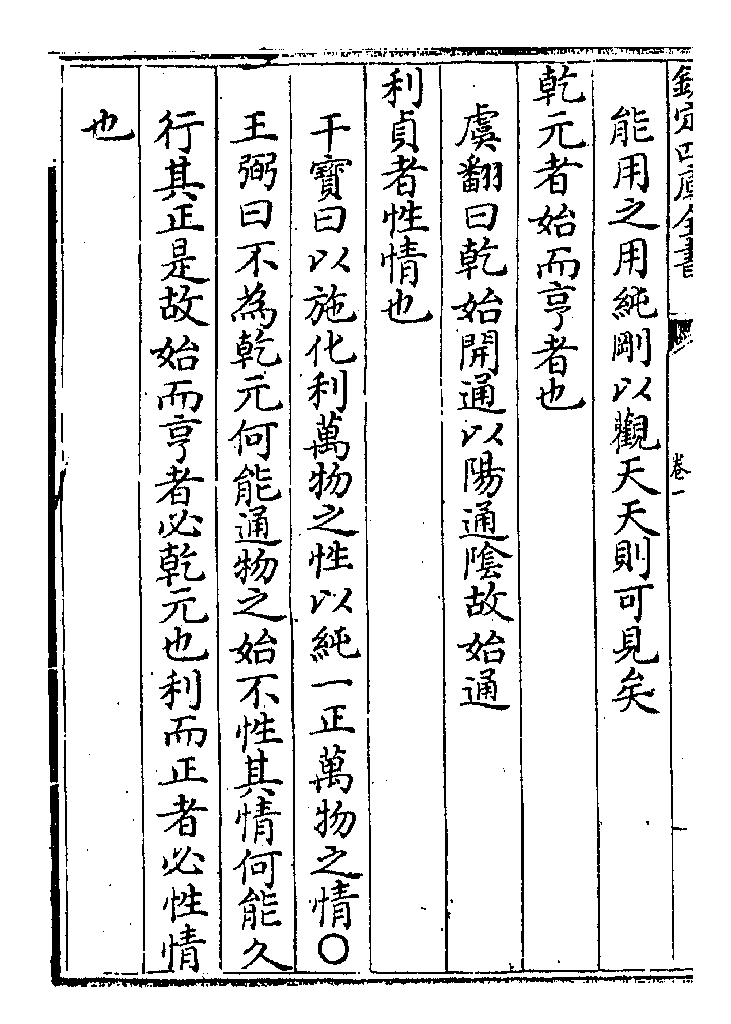 欽定四庫全書
卷一
能用之用純剛以觀天天則可見矣
乾元者始而亨者也
虞翻曰乾始開通以陽通隂故始通
利貞者性情也
干寳曰以施化利萬物之性以純一正萬物之情〇
王弼曰不為乾元何能通物之始不性其情何能久
行其正是故始而亨者必乾元也利而正者必性情
也